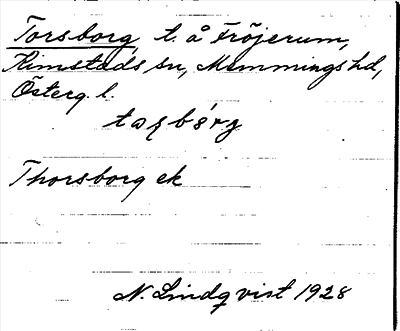 Torsborg, t. å Fröjerum,
Rimstads sn, Memmings hd,
Österg. l.
Thorsborg ek
N. Lindqvist 1928